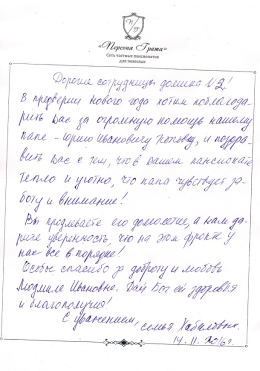 «Персона Грата»
Сеть частных пансионатов
для пожилых
Дорогие сотрудницы домика №2!
В преддверии Нового года хотим поблагода-
рить Вас за огромную помощь нашему
папе - Юрию Ивановичу и поздра-
вить Вас с тем, что в Вашем пансионате
тепло и уютно, что папа чувствует за-
боту и внимание!
Вы продлеваете его долголетие, а нам да-
рите уверенность, что на этом фронте у
нас все в порядке!
Особое спасибо за доброту и любовь
Людмиле Ивановне. Дай Бог ей здоровья
и благополучия!
С уважением, семья
14. 11. 2016г.